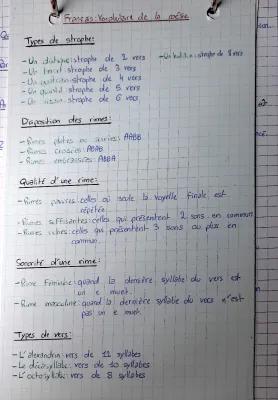 Français: Vocabulaire de la poésie
Types de strophe:
- Un distique: strophe de 2 vers - Un huitain: strophe de 8 vers
- Un tercet: strophe de 3 vers
- Un quatrain: strophe de 4 vers
- Un quintil: strophe de 5 vers
- Un sizain: strophe de 6 vers
Disposition des rimes:
- Rimes plates ou suivies: AABB
- Rimes croisées: ABAB
- Rimes embrassées: ABBA
Qualité d'une rime:
- Rimes pauvres: celles où seule la voyelle finale est
répétée
- Rimes suffisantes: celles qui présentent 2 sons en commun
- Rimes riches: celles qui présentent 3 sons ou plus en
commun
Sonorité d'une rime:
- Rime féminine: quand la dernière syllabe du vers est
un e muet.
- Rime masculine: quand la dernière syllabe du vers n'est
pas un e muet.
Types de vers:
- L'alexandrin: vers de 12 syllabes
- Le décasyllabe: vers de 10 syllabes
- L'octosyllabe: vers de 8 syllabes